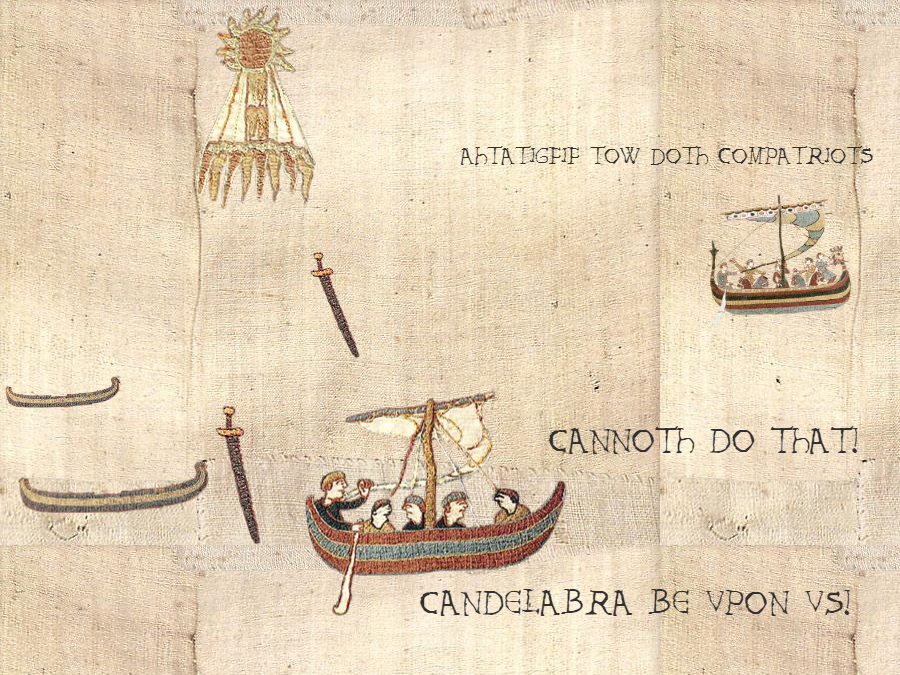 TOW DOTH COMPATRIOTS
CANNOTH DO THAT!
CANDELABRA BE VPON VS!